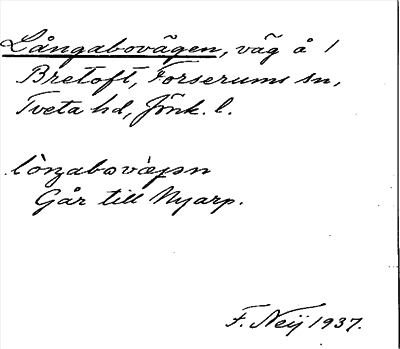 Långabovägen, väg å 1
Bretoft, Forserums sn,
Tveta hd, Jönk. l.
Går till Nyarp.
F. Neij 1937.